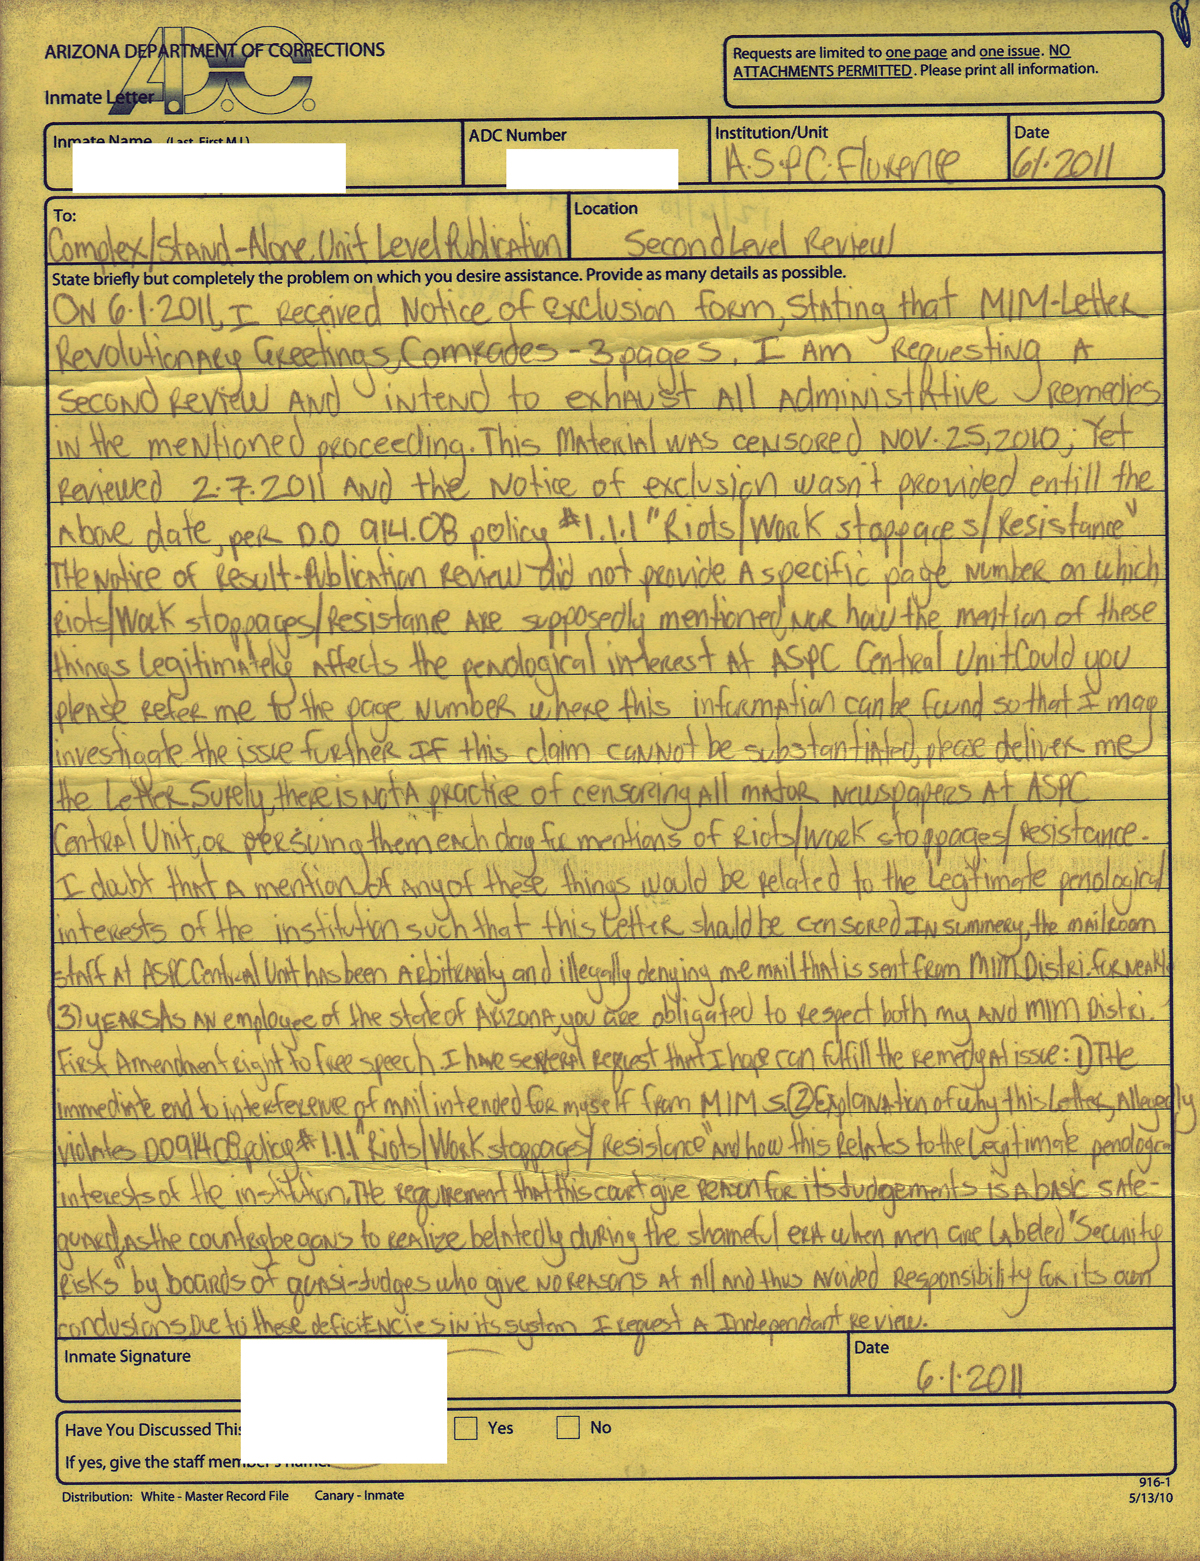 ARIZONA DEPARTMENT OF CORRECTIONS
A.D.C.
Inmate Letter
Requests are limited to one page and one issue. NO
ATTACHMENTS PERMITTED. Please print all information.
Inmate Name (Last, First M.I.)
ADC Number
Institution/Unit
A.S.P.C. Florence
Date
6/1.2011
To:
Complex/Stand-Alone Unit Level Publication
Location
Second Level Review
State briefly but completely the problem on which you desire assistance. Provide as many details as possible.
ON 6.1.2011, I received Notice of Exclusion form, stating that MIM-Letter
Revolutionary Greetings, Comrades - 3 pages. I Am requesting A
second Review AND intend to exhaust All Administrative remedies
in the mentioned proceeding. This Material was censored NOV. 25, 2010; Yet
Reviewed 2.7.2011 AND the Notice of exclusion wasn't provided entill the
Above date, per D.O 914.08 policy #1.1.1 "Riots/Work stoppages/Resistance"
THe Notice of Result-Publication Review did not provide A specific page Number on which
Riots/Work stoppages/Resistance Are supposedly mentioned, Nor how the mention of these
things Legitimately Affects the penological interest At ASPC Central Unit. Could you
please refer me to the page Number where this information can be found so that I may
investigate the issue further IF this claim CANNOT be substantiated, please deliver me
the Letter. Surely, there is NOT A practice of censoring All mator Newspapers At ASPC
Central Unit, or persuing them each day for mentions of Riots/Work stoppages/Resistance.
I doubt that A mention of Any of these things would be related to the Legitimate penological
interests of the institution such that this Letter should be censored. IN summery, the mailroom
staff At ASPC Central Unit has been Arbitrarily and illegally denying me mail that is sent from MIM Distri. For Nearly
(3) YEARS As AN employee of the state of Arizona, you are obligated to respect both my AND MIM Distri.
First Amendment Right to free speech. I have several request that I hope can fulfill the remedy At issue: 1) THe
immediate end to interference of mail intended for myself from MIM s. (2) Explanation of why this Letter, Allegedly
violates DO 914.08 policy #1.1.1 "Riots/Work stoppages/Resistance" and how this Relates to the Legitimate penological
interests of the institution. THe requirement that this court give reason for its Judgements is A basic safe-
guard, As the country begans to realize belatedly during the shameful era when men are Labeled "Security
Risks" by boards of quasi-Judges who give NO reasons At All and thus Avoided Responsibility for its own
conclusions. Due to these deficiencies in its system I request A Independant Review.
Inmate Signature
Date
6.1.2011
Have You Discussed This
Yes
No
If yes, give the staff member's name:
Distribution: White - Master Record File Canary - Inmate
916-1
5/13/10